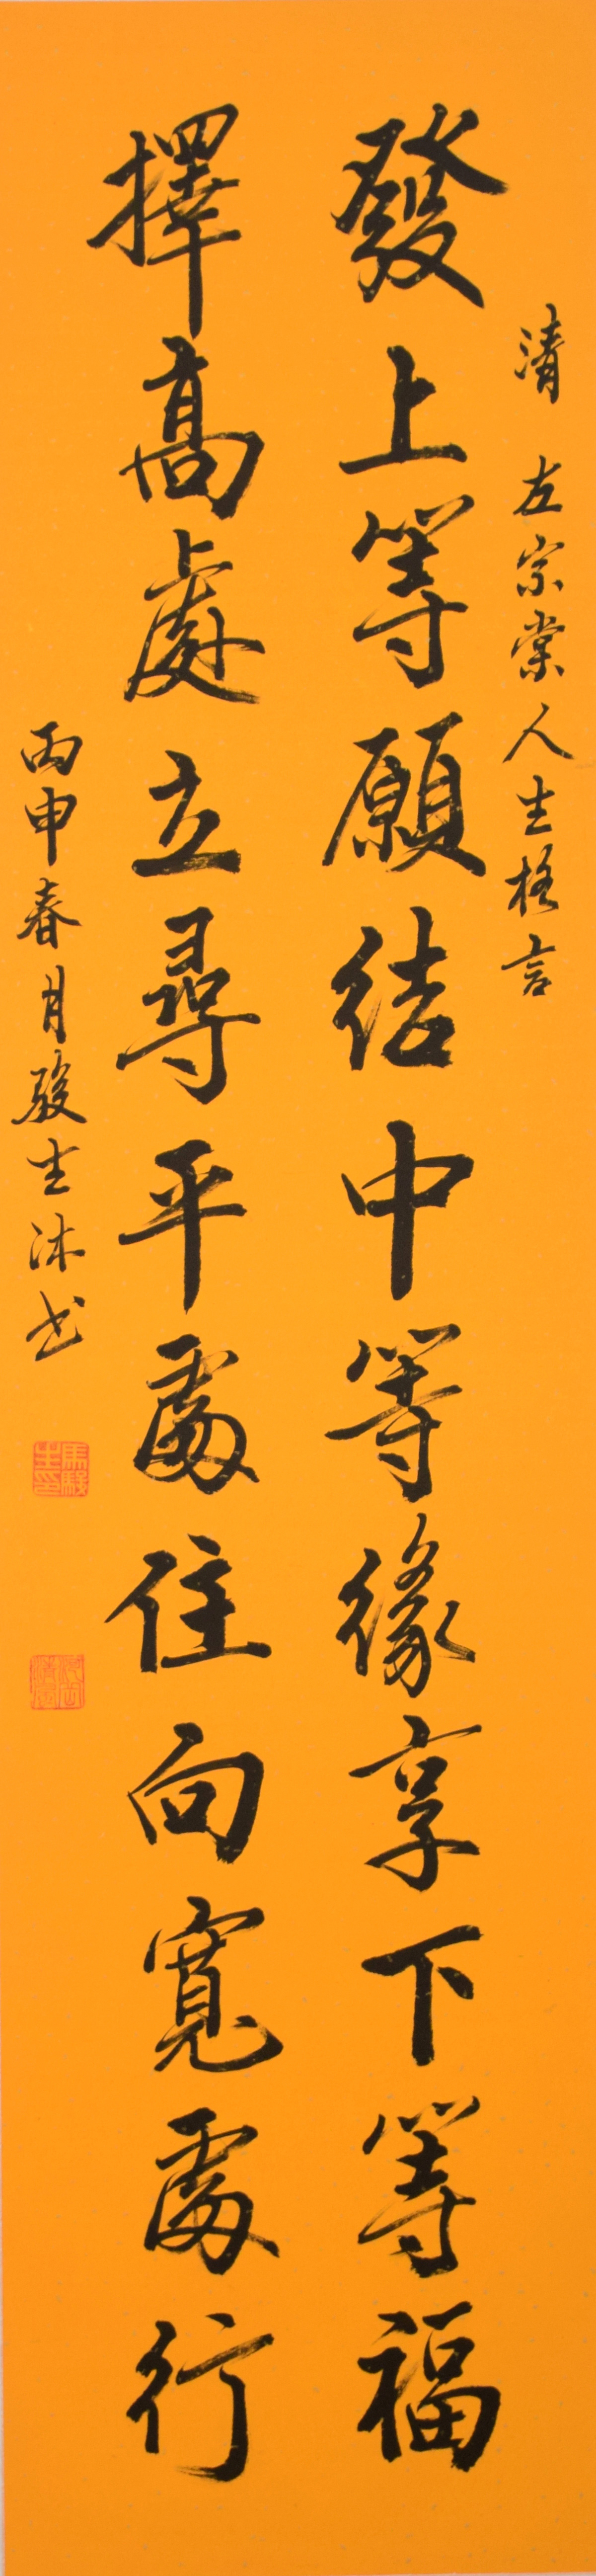 清 左宗棠人生格言
發上等願結中等緣享下等福
擇高處立尋平處住向寬處行
丙申春月駿生沐书
馬駿生印